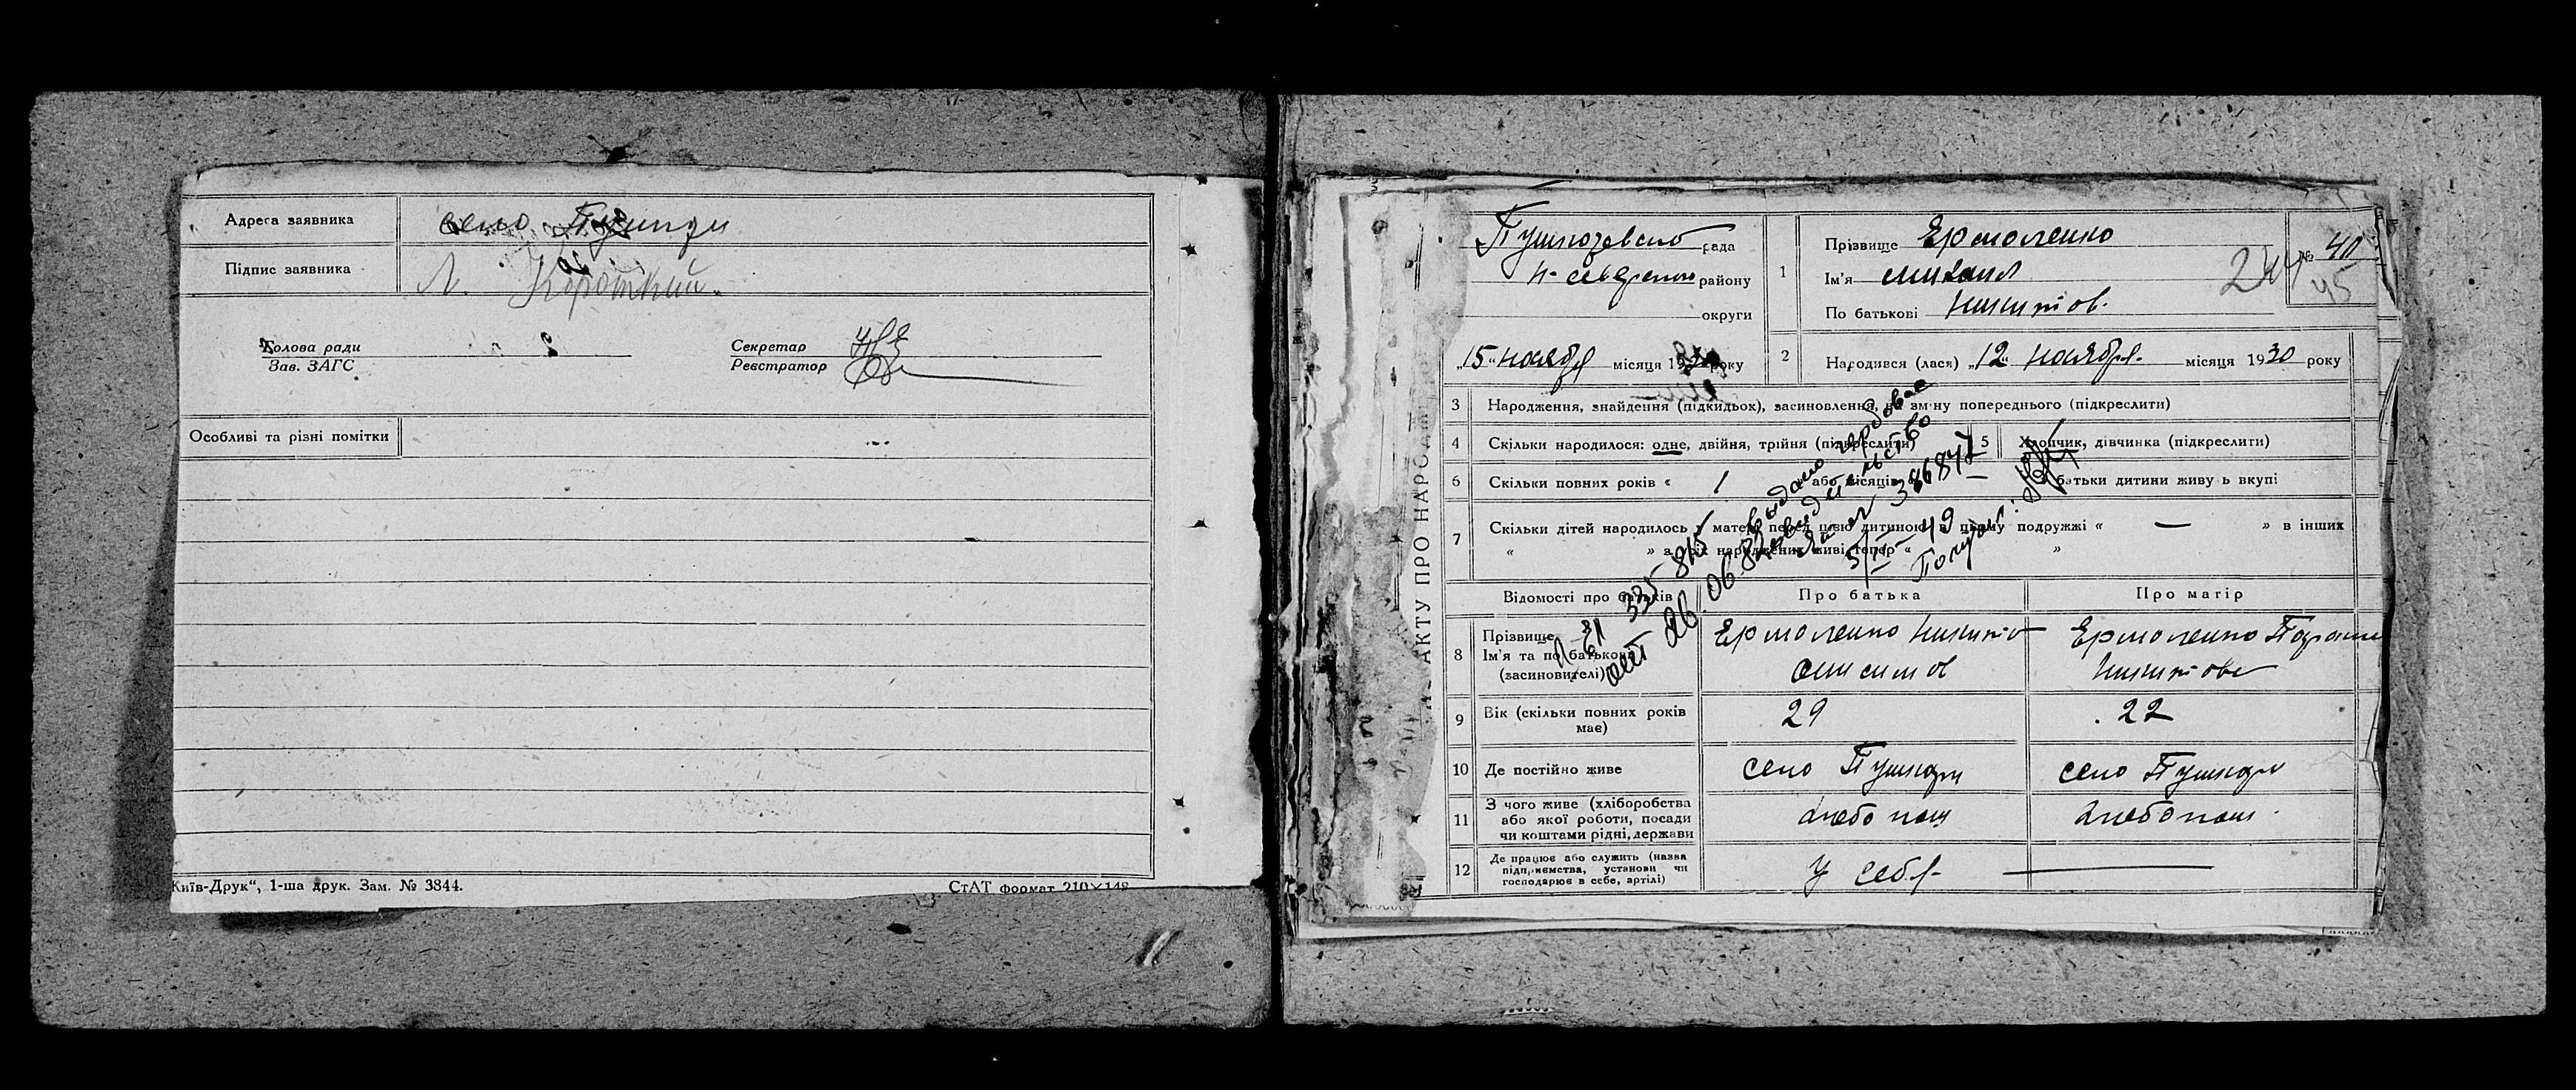 Адреса заявника село Пушкари
Підпис заявника Л. Короткий
Голова ради
Зав. ЗАГС
Секретар
Реєстратор
Особливі та різні помітки
Київ-Друк“, 1-ша друк. Зам. № 3844.
СтАТ формат 210×148
АКТУ ПРО НАРОДЖ
рада
Н-Северского району
округи
„15“ ноября місяця 1930 року
1 Прізвище Ермоленко
Ім'я Михаил
По батькові Никитов.
№ 40
45
244
2 Народився (лася) „12“ ноября місяця 1930 року
3 Народження, знайдення (підкидьок), засиновлення, на зміну попереднього (підкреслити)
4 Скільки народилося: одне, двійня, трійня (підкреслити)
5 Хлопчик, дівчинка (підкреслити)
6 Скільки повних років « 1 або місяців « — батьки дитини живуть вкупі
7 Скільки дітей народилось у матері перед цією дитиною: в цьому подружжі « — » в інших
« » а з них народжених живі тепер « »
Выдано гербовое
свидетельство
386847
5/II-49
Получил:
335 845
от 26.06.82
Відомості про батьків Про батька Про матір
8 Прізвище
Ім'я та по батькові
(засиновителі)
Ермоленко Никита
Онисимов
Ермоленко Параск
Никитова
9 Вік (скільки повних років
має)
29 22
10 Де постійно живе село Пушкари село Пушкари
11 З чого живе (хліборобства
або якої роботи, посади
чи коштами рідні, держави
хлебопаш хлебопаш.
12 Де працює або служить (назва
підприємства, установи чи
господарює в себе, артілі)
у себя —